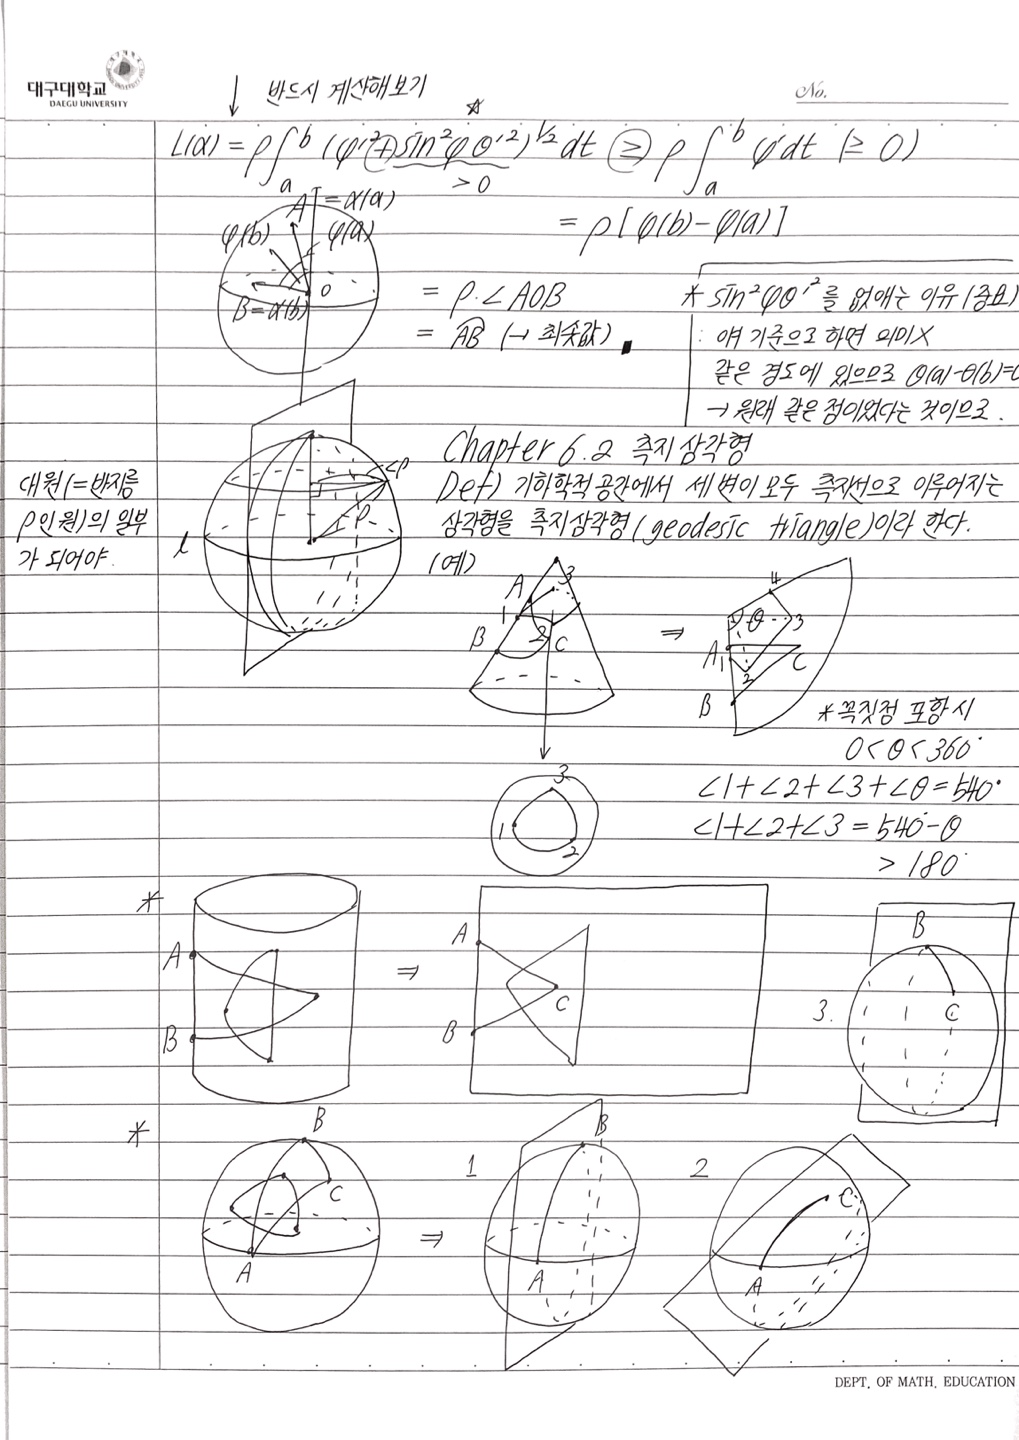 대구대학교
DAEGU UNIVERSITY
No.
↓ 반드시 계산해보기
L(α) = ρ∫ₐᵇ (φ'²+sin²φθ'²)^1/2 dt ≥ ρ∫ₐᵇ φ'dt (≥ 0)
☆
> 0
= ρ[φ(b)-φ(a)]
A = α(a)
φ(b) φ(a)
O
B=α(b)
= ρ·∠AOB
= AB (→ 최솟값)
* sin²φθ'²를 없애는 이유 (중요)
: 얘 기준으로 하면 의미X
같은 경도에 있으므로 θ(a)-θ(b)=0
→ 원래 같은 점이었다는 것이므로.
대원(=반지름
ρ인 원)의 일부
가 되어야.
l
<ρ
ρ
Chapter 6.2 측지삼각형
Def) 기하학적공간에서 세 변이 모두 측지선으로 이루어지는
삼각형을 측지삼각형(geodesic triangle)이라 한다.
(예)
A 3
1
B 2 C
⇒
4
θ 3
A 1 C
2
B
*꼭짓점 포함시
0<θ<360°
∠1+∠2+∠3+∠θ=540°
∠1+∠2+∠3 = 540°-θ
> 180°
3
1
2
*
A
B
⇒
A
B
C
3.
B
C
*
B
C
A
⇒
1
B
A
2
C
A
DEPT. OF MATH. EDUCATION